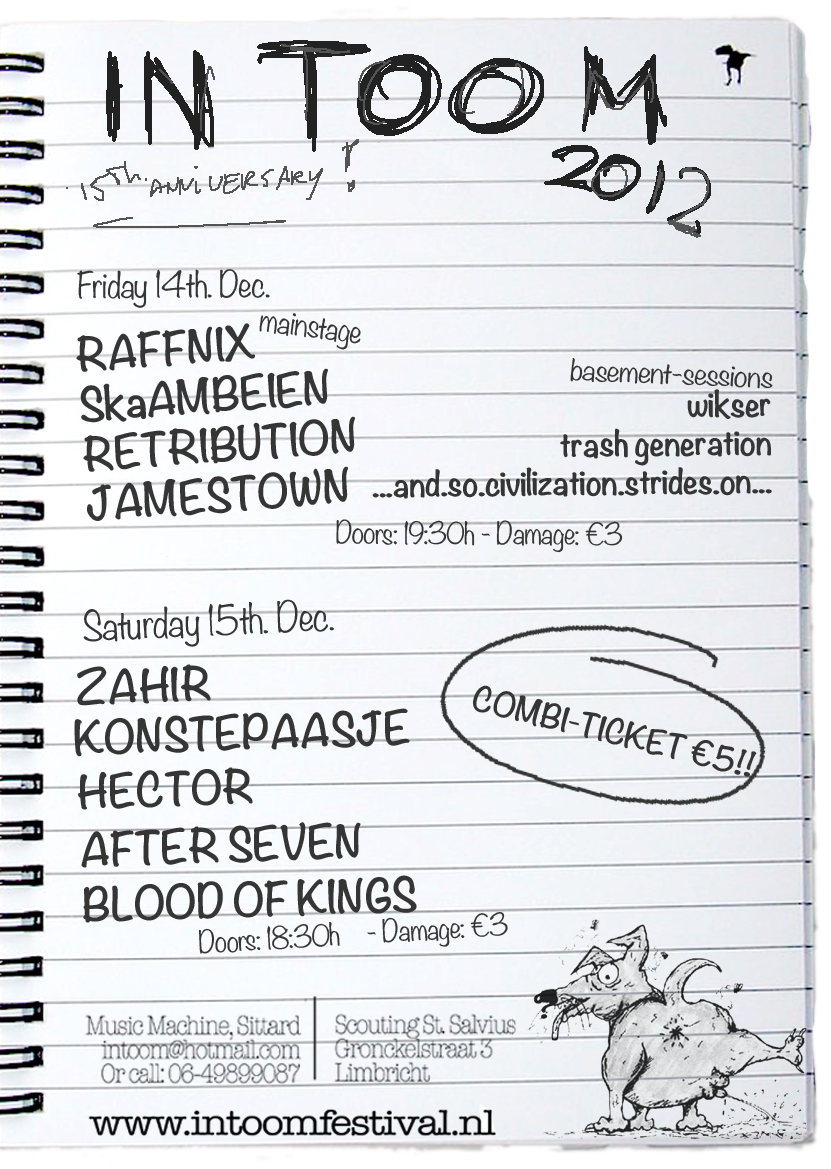 IN TOOM
2012
15th. ANNIVERSARY!
Friday 14th. Dec.
RAFFNIX mainstage
SkaAMBEIEN
RETRIBUTION
JAMESTOWN
basement-sessions
wikser
trash generation
...and.so.civilization.strides.on...
Doors: 19:30h - Damage: €3
Saturday 15th. Dec.
ZAHIR
KONSTEPAASJE
HECTOR
AFTER SEVEN
BLOOD OF KINGS
Doors: 18:30h - Damage: €3
COMBI-TICKET €5!!
Music Machine, Sittard
intoom@hotmail.com
Or call: 06-49899087
Scouting St. Salvius
Gronckelstraat 3
Limbricht
www.intoomfestival.nl